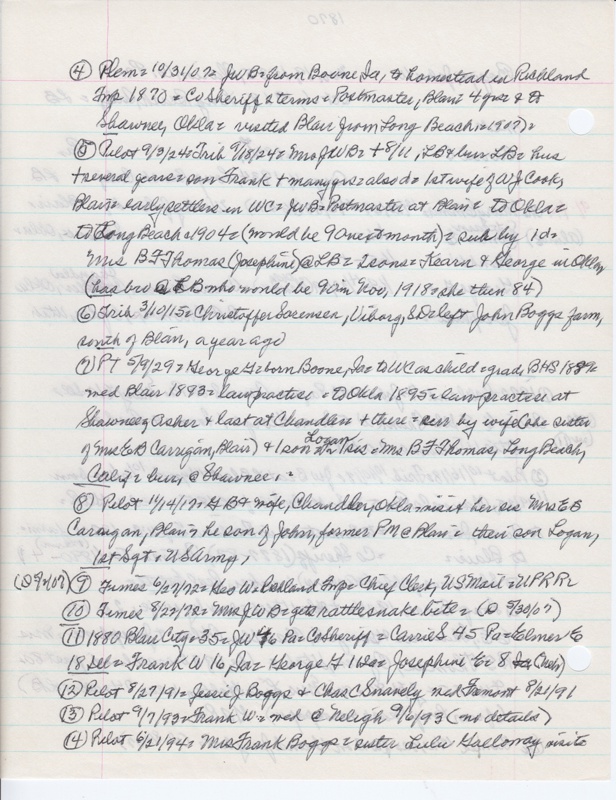 ④ Plem = 10/31/07 = JWB = from Boone, Ia, to homestead in Richland
Twp 1870 = Co Sheriff 2 terms = Postmaster, Blair 4 yrs & to
Shawnee, Okla = visited Blair from Long Beach = 1907) =
⑤ Pilot 9/3/24 = Trib 9/18/24 = Mrs JWB = + 8/11, LB & bur LB = hus
+ several years = son Frank + many yrs = also d = 1st wife of WJ Cook,
Blair = early settlers in WC = JWB = Postmaster at Blair = to Okla =
to Long Beach = 1904 = (would be 90 next month) = surv by 1 d =
Mrs BF Thomas (Josephine) @ LB = 2 sons = Kearn & George in Okla
(has bro @ LB who would be 90 in Nov, 1918 = she then 84)
⑥ Trib 3/10/15 = Christoffer Sorensen, Viborg, SD = left John Boggs farm,
south of Blair, a year ago
⑦ PT 5/9/29 = George G = born Boone, Ia = to WC as child = grad BHS 1889
med Blair 1893 = law practice = to Okla 1895 = law practice at
Shawnee, Asher & last at Chandler + there = surv by wife (she sister
of Mrs ED Carrigan, Blair) & 1 son Logan = 1 sis = Mrs BF Thomas, Long Beach,
Calif = bur @ Shawnee,
⑧ Pilot 11/14/17 = GB & wife, Chandler, Okla = visit her sis Mrs ED
Carrigan, Blair = he son of John, former PM @ Blair = their son Logan,
1st Sgt = US Army,
⑨ Times 6/27/72 = Geo W = Richland Twp = Chief Clerk, US Mail = UPRR
⑩ Times 8/22/72 = Mrs JWB = gets rattlesnake bite = (@ 5/30/07)
⑪ 1880 Blair City = 35 = JW 46 Pa = Co Sheriff = Carrie S 45 Pa = Elmer E
18 Ill = Frank W 16, Ia = George G 12 Ia = Josephine E = 8 (Neb)
⑫ Pilot 8/27/91 = Jessie J Boggs & Chas C Snavely med Fremont 8/21/91
⑬ Pilot 9/7/93 = Frank W = med @ Neligh 9/6/93 (no details)
⑭ Pilot 6/21/94 = Mrs Frank Boggs = sister Lulu Galloway visits